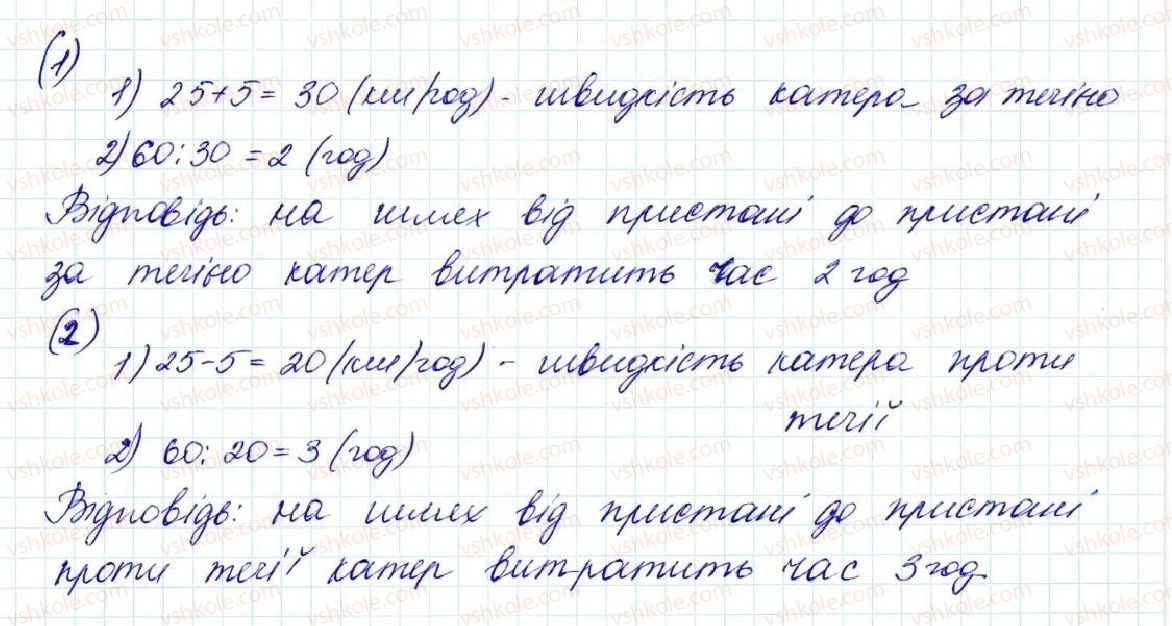 (1)
1) 25+5= 30 (км/год) - швидкість катера за течією
2) 60:30 = 2 (год)
Відповідь: на шлях від пристані до пристані
за течією катер витратить час 2 год
(2)
1) 25-5= 20 (км/год) - швидкість катера проти
течії
2) 60:20=3 (год)
Відповідь: на шлях від пристані до пристані
проти течії катер витратить час 3 год.
vshkole.com